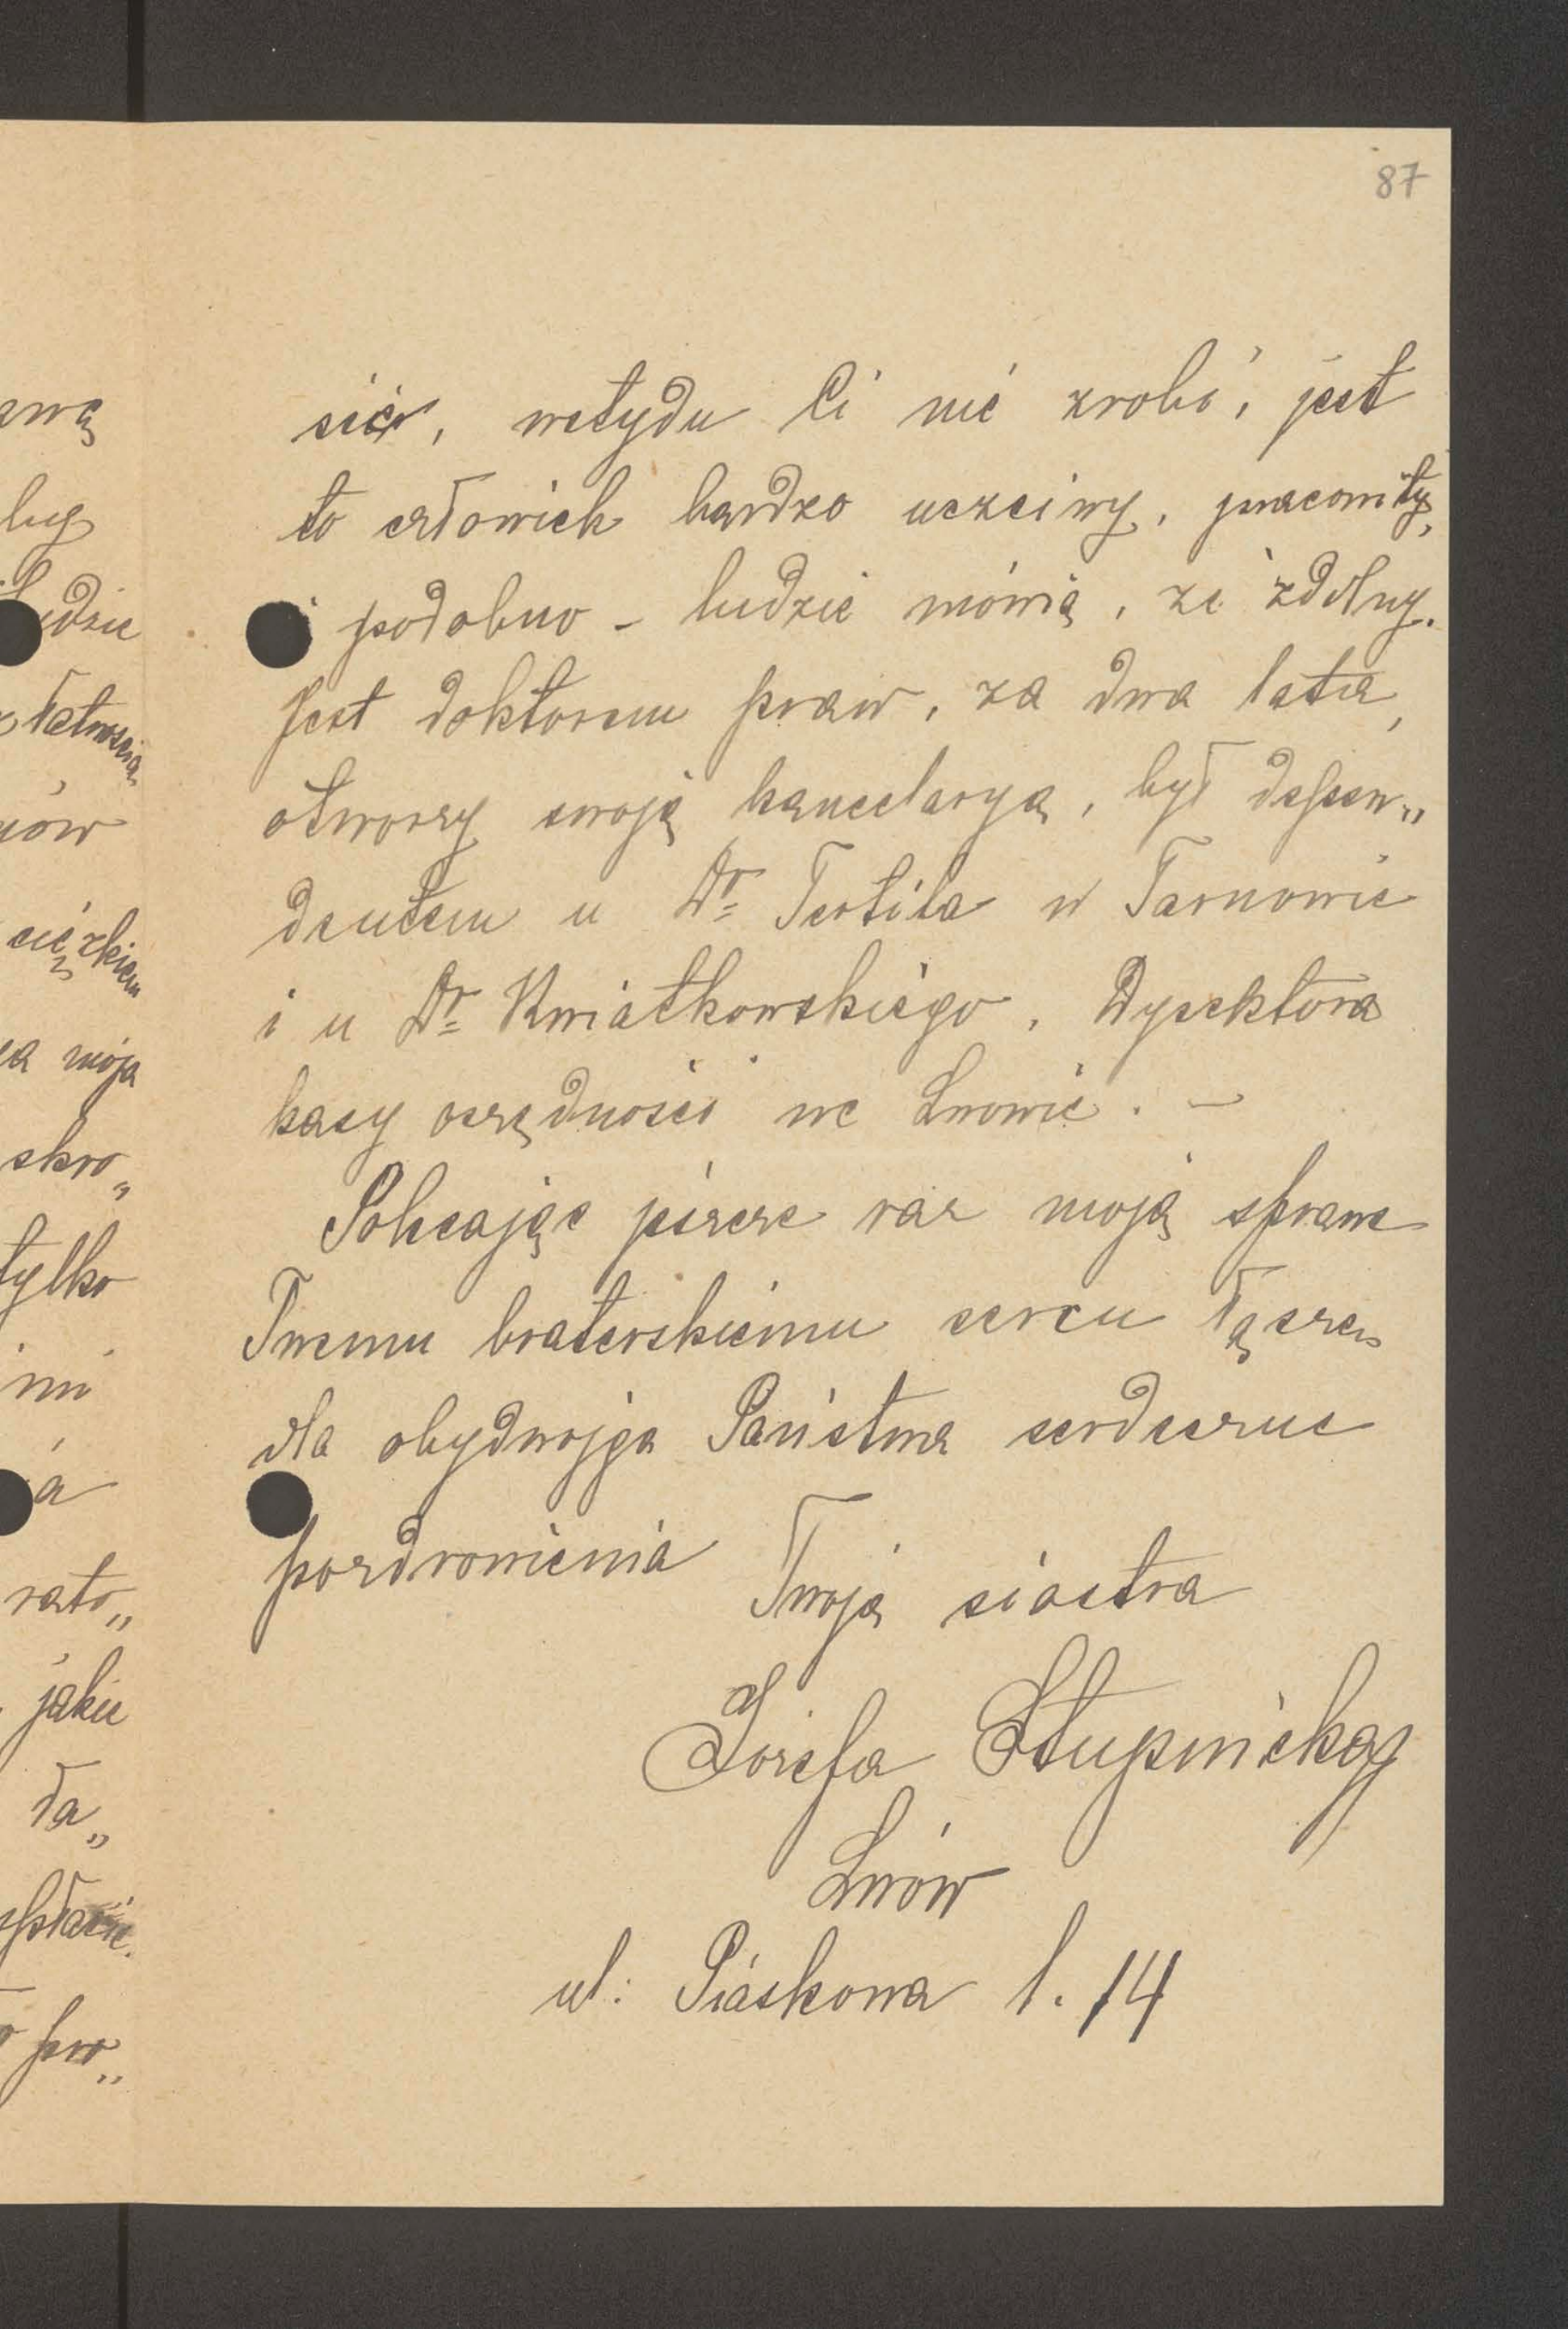 87
sić, wstydu Ci nie zrobi, jest
to człowiek bardzo uczciwy, pracowity,
i podobno – ludzie mówią, że zdolny.
Jest doktorem praw, za dwa lata,
otworzy swoją kancelaryą, był depen„
dentem u Dr Tertila w Tarnowie
i u Dr Kwiatkowskiego, Dyrektora
kasy oszczędności we Lwowie. –
Polecając jeszcze raz moją sprawę
Twemu braterskiemu sercu łączę
dla obydwojga Państwa serdeczne
pozdrowienia
Twoja siostra
Józefa Słupnicka
Lwów
ul: Piaskowa l. 14
żkiem
a moja
skro„
tylko
mi
rato„
jakie
ła„
pro„